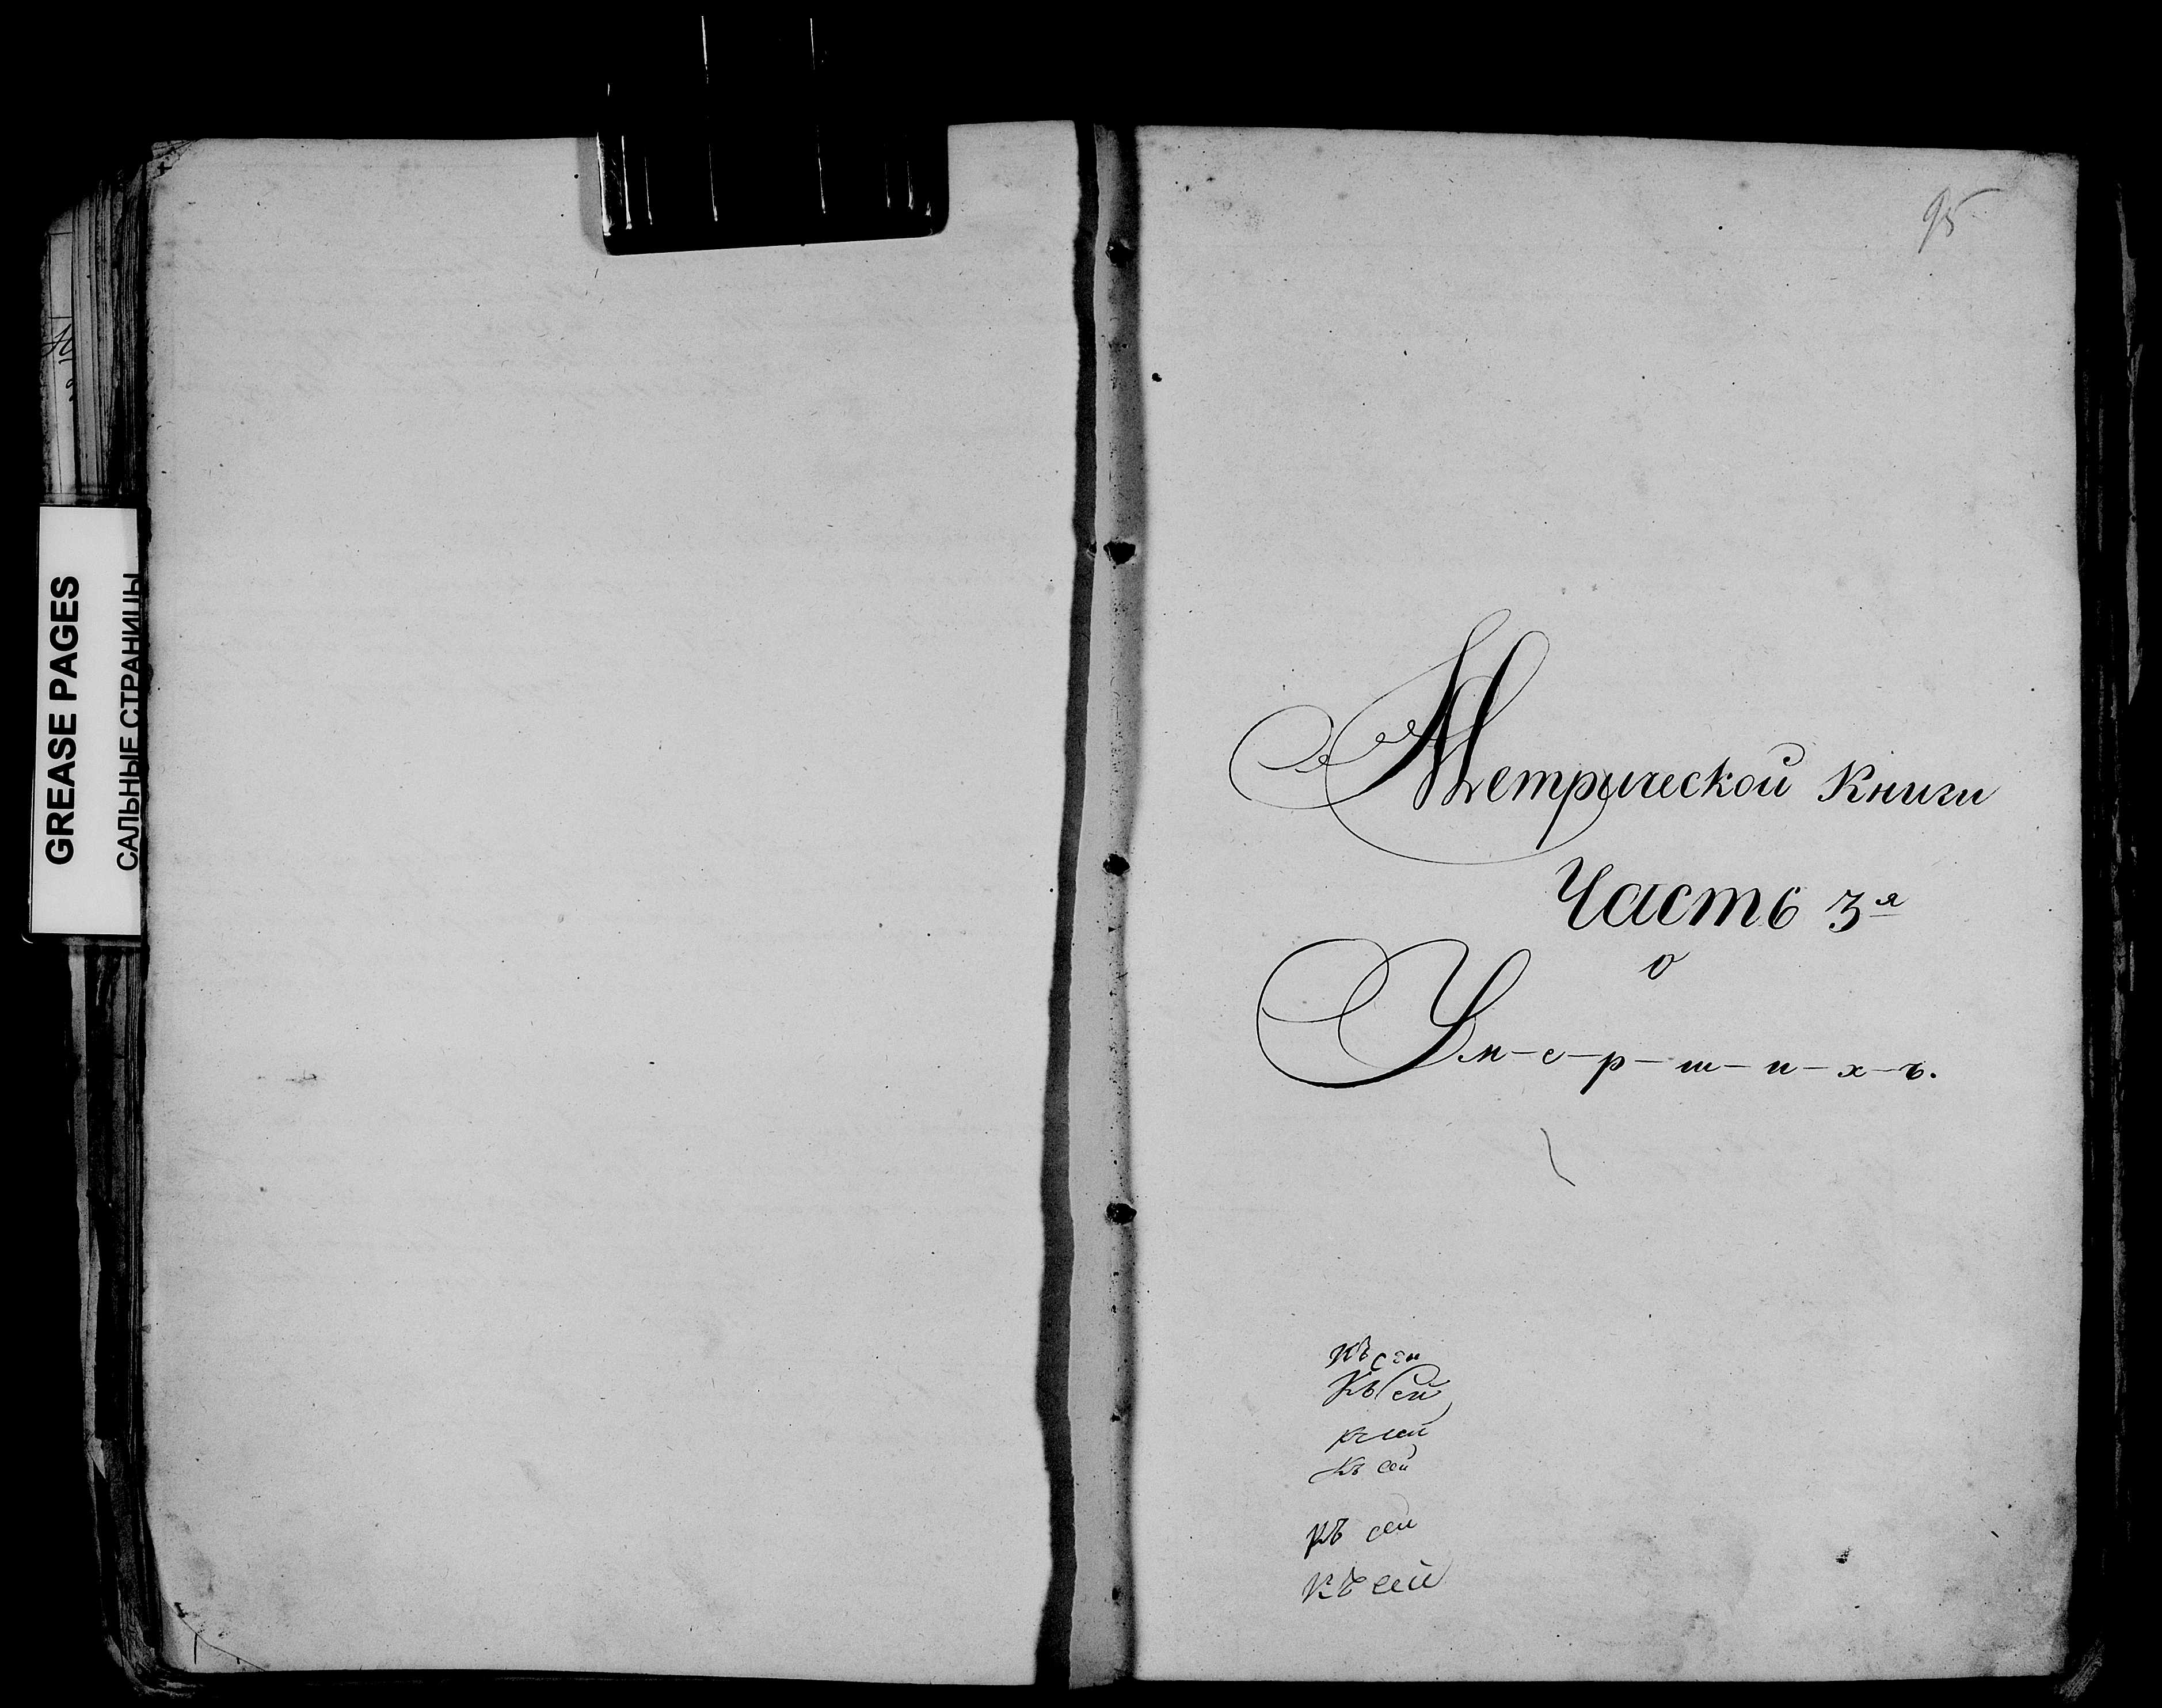 GREASE PAGES
САЛЬНЫЕ СТРАНИЦЫ
95
Метрической Книги
Часть 3я
о
Ум-е-р-ш-и-х-ъ.
Къ сей
Къ сей
Къ сей
Къ сей
Къ сей
Къ сей